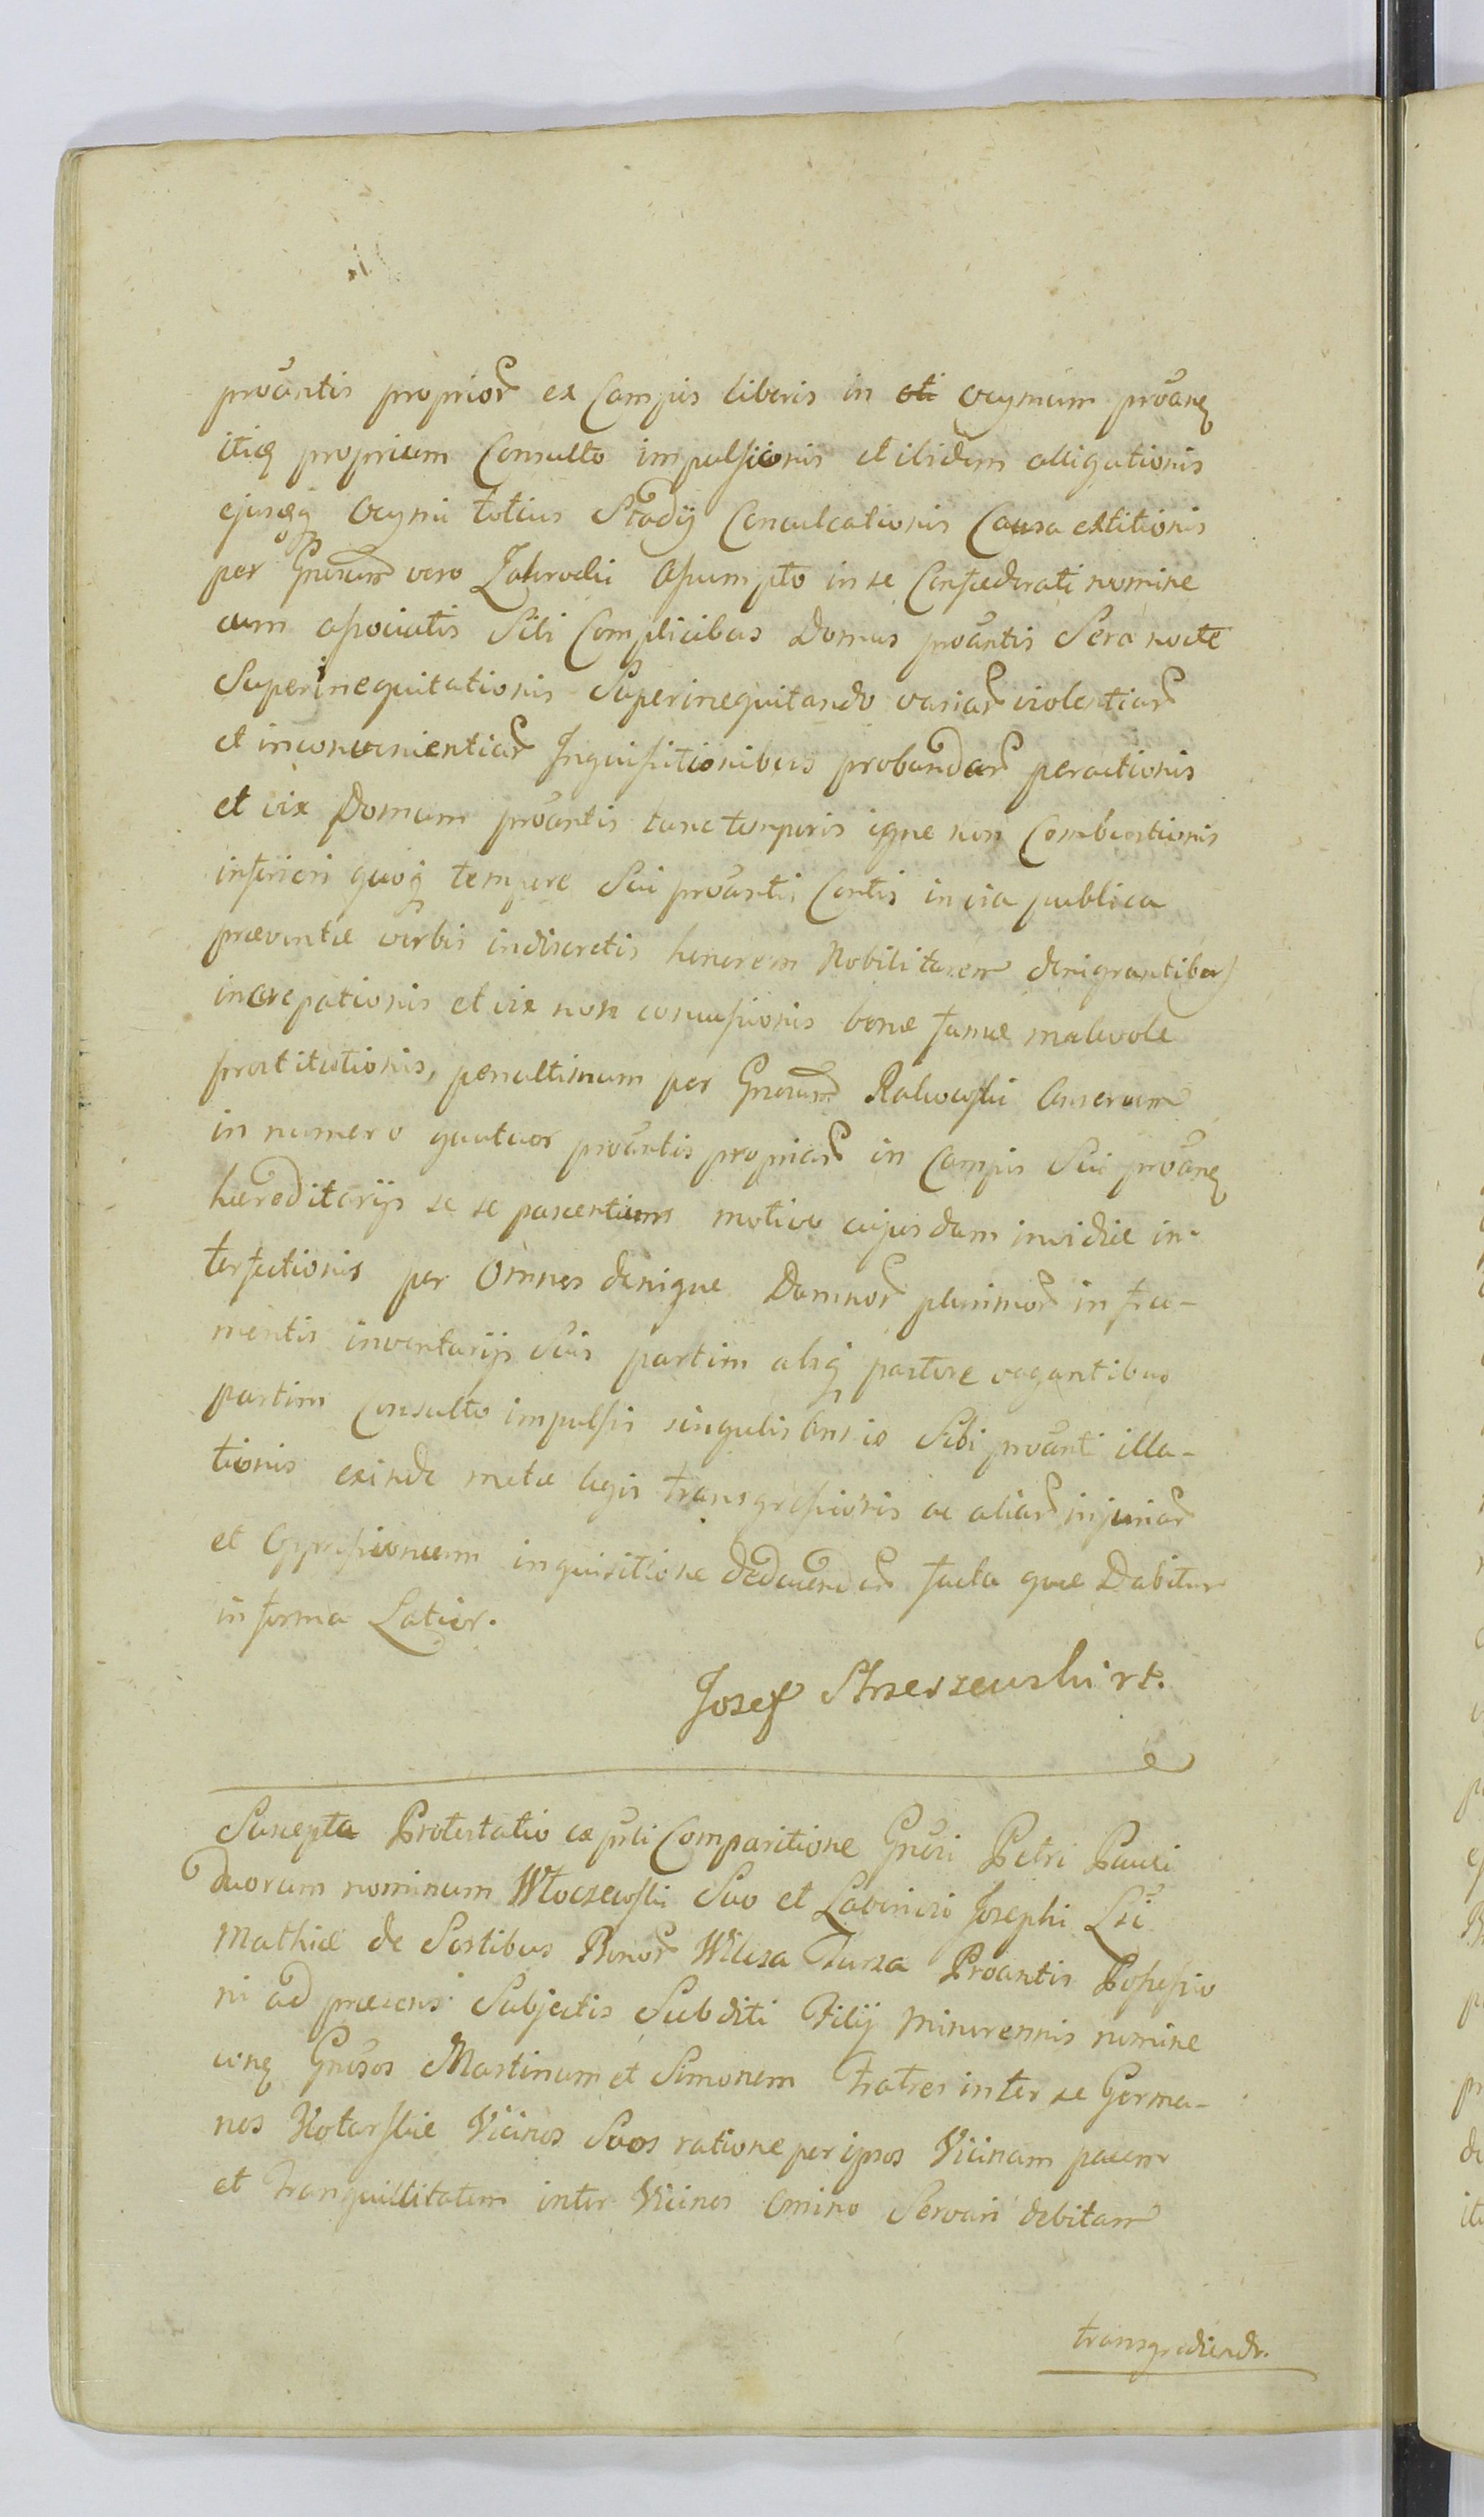 proantis proprior ex Campis liberis in oti Ocymum proane
itiq proprium Consulto impulsionis et ibidem alligationis
ejusqȝ Ocymi totius Stadij Conculcationis Causa extitionis
per Gnosum vero Zakrocki Assumpto in se Confaederati nomine
cum associatis Sibi Complicibus Domus proantis Sera nocte
Superinequitationis Superinequitando variar violentiar
et inconvenientiar Inquisitionibus probandar peractionis
et vix Domum proantis tunc temporis igne non Combustionis
inferiori quoqȝ tempore Sui proantis Contis in via publica
praeventae verbis indiscretis honorem Nobilitarem denigrantibus
increpationis et vix non concussionis bonae famae malevole
prostitutionis, penultimum per Gnosum Rakowski Anserum
in numero quatuor proantis propriar in Campis Sui proane
haereditarijs se se pascentium motivo cujusdam invidiae in-
terfectionis per Omnes denique Damnor plurimor in fru-
mentis inventarijs Suis partim absqȝ pastore vagantibus
partim Consulto impulsis singulis Annis Sibi proanti illa-
tionis exinde metae legis transgressionis ac aliar injuriar
et Oppressionum inquisitione deducendar facta quae Dabitur
in forma Latior.
Josef Strzeszewski rt.
Suscepta Protestatio ex psti Comparitione Gnosi Petri Pauli
duorum nominum Włoczewski Suo et Laboriosi Josephi Lsi
Mathiae de Sortibus Bonor Wilcza Turza Proantis Possessio
ni ad praesens Subjectis Subditi Filij Minorennis nomine
cone Gnosos Martinum et Simonem Fratres inter se Germa-
nos Kotarskie Vicinos Suos ratione per ipsos Vicinam pacem
et Tranquillitatem inter Vicinos Omino Servari debitam
transgrediendo.